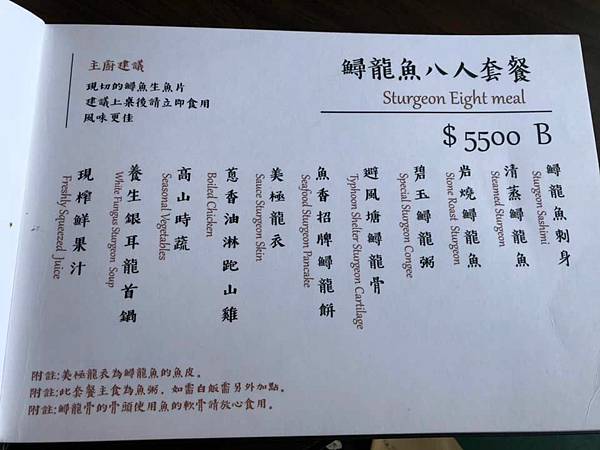 主廚建議
現切的鱘魚生魚片
建議上桌後請立即食用
風味更佳
鱘龍魚八人套餐
Sturgeon Eight meal
$ 5500 B
鱘龍魚刺身
Sturgeon Sashimi
清蒸鱘龍魚
Steamed Sturgeon
岩燒鱘龍魚
Stone Roast Sturgeon
碧玉鱘龍粥
Special Sturgeon Congee
避風塘鱘龍骨
Typhoon Shelter Sturgeon Cartilage
魚香招牌鱘龍餅
Seafood Sturgeon Pancake
美極龍衣
Sauce Sturgeon Skin
蔥香油淋跑山雞
Boiled Chicken
高山時蔬
Seasonal Vegetables
養生銀耳龍首鍋
White Fungus Sturgeon Soup
現榨鮮果汁
Freshly Squeezed Juice
附註:美極龍衣為鱘龍魚的魚皮。
附註:此套餐主食為魚粥，如需白飯需另外加點。
附註:鱘龍骨的骨頭使用魚的軟骨請放心食用。